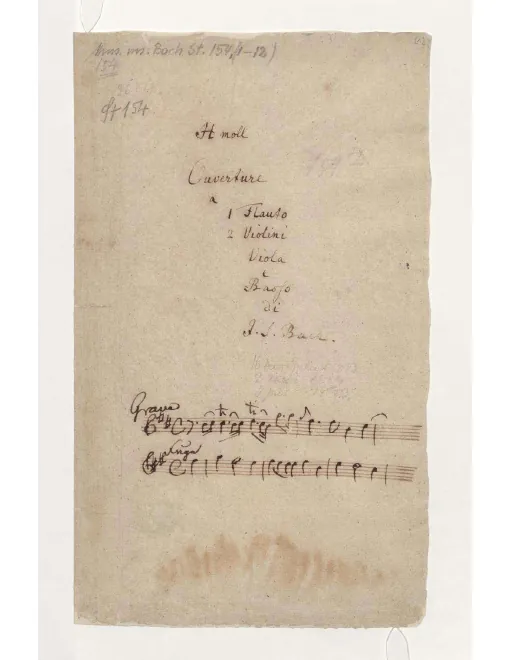 Mus. ms. Bach St. 154 (1–12)
154
St 154
H moll
Ouverture
a
1 Flauto
2 Violini
Viola
e
Basso
di
J. S. Bach.
Grave
tr tr
Fuga